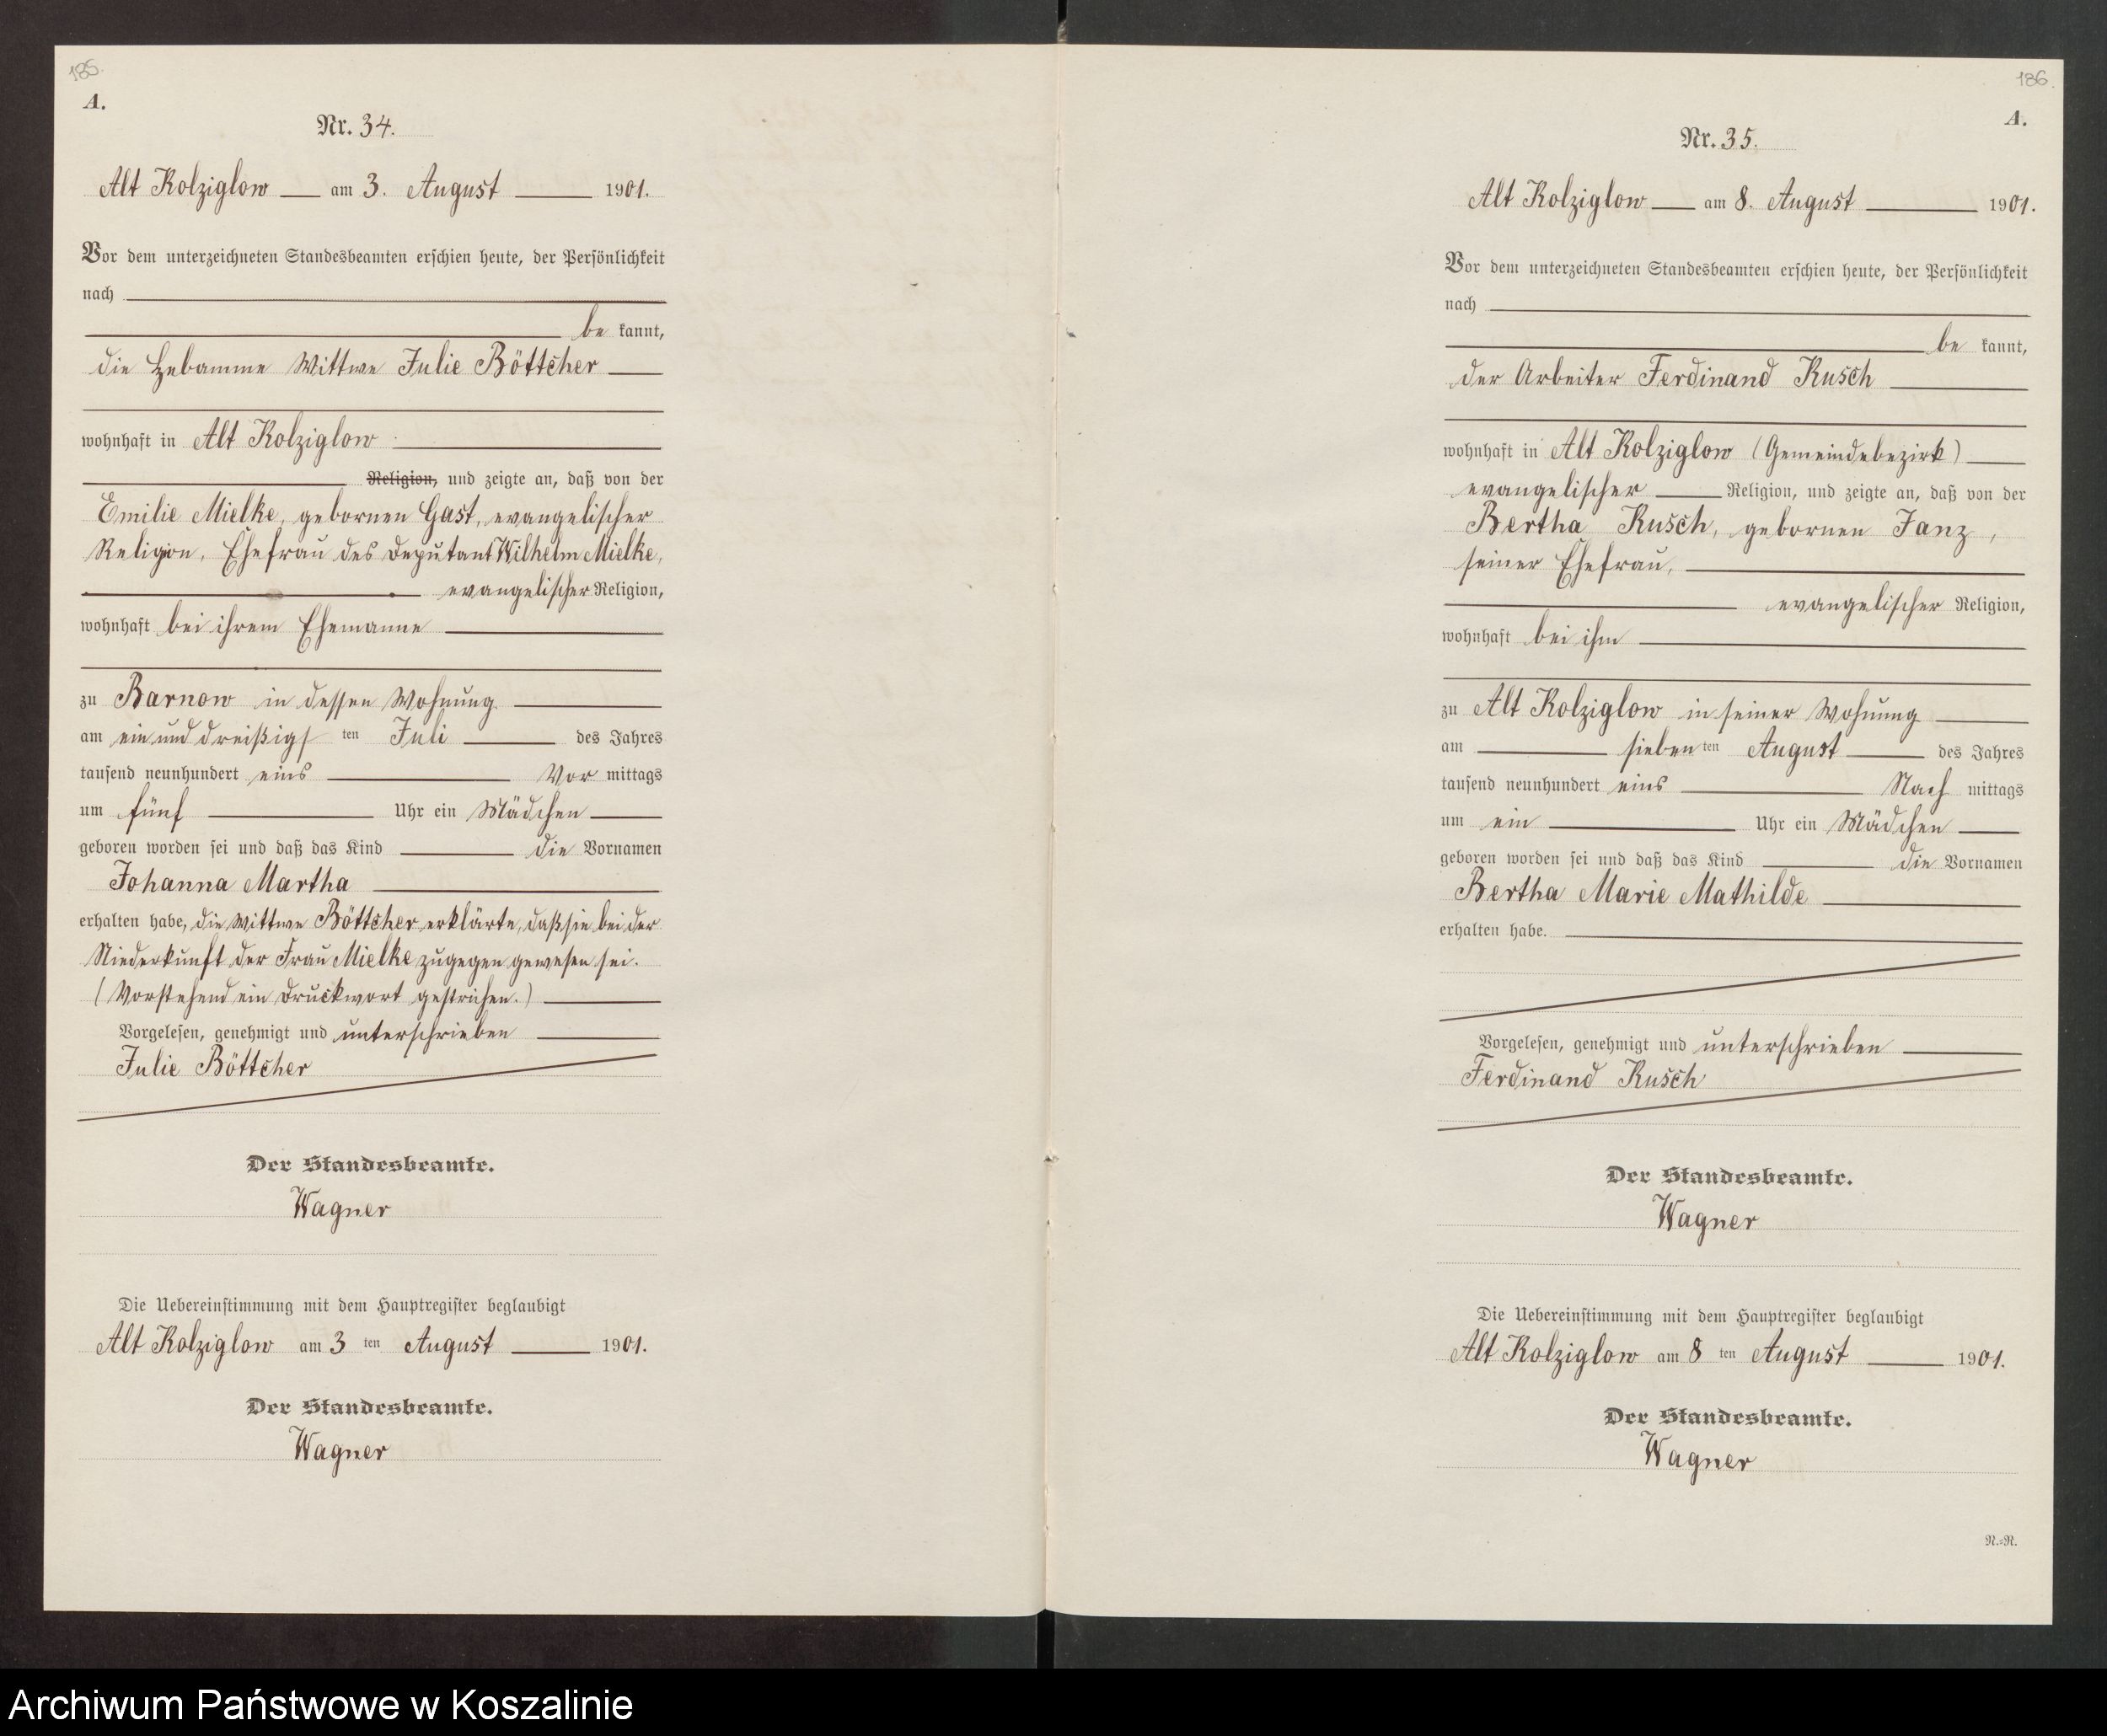 185.
A.
Nr. 34.
Alt Kolziglow am 3. August 1901.
Vor dem unterzeichneten Standesbeamten erschien heute, der Persönlichkeit
nach
be kannt,
die Hebamme Wittwe Julie Böttcher
wohnhaft in Alt Kolziglow
Religion, und zeigte an, daß von der
Emilie Mielke, gebornen Gast, evangelischer
Religion, Ehefrau des Deputant Wilhelm Mielke,
evangelischer Religion,
wohnhaft bei ihrem Ehemanne
zu Barnow in dessen Wohnung
am ein und dreißigs ten Juli des Jahres
tausend neunhundert eins Vor mittags
um fünf Uhr ein Mädchen
geboren worden sei und daß das Kind die Vornamen
Johanna Martha
erhalten habe, die Wittwe Böttcher erklärte, daß sie bei der
Niederkunft der Frau Mielke zugegen gewesen sei.
(Vorstehend ein Druckwort gestrichen.)
Vorgelesen, genehmigt und unterschrieben
Julie Böttcher
Der Standesbeamte.
Wagner
Die Uebereinstimmung mit dem Hauptregister beglaubigt
Alt Kolziglow am 3 ten August 1901.
Der Standesbeamte.
Wagner
186.
A.
Nr. 35.
Alt Kolziglow am 8. August 1901.
Vor dem unterzeichneten Standesbeamten erschien heute, der Persönlichkeit
nach
be kannt,
der Arbeiter Ferdinand Kusch
wohnhaft in Alt Kolziglow (Gemeindebezirk)
evangelischer Religion, und zeigte an, daß von der
Bertha Kusch, gebornen Janz,
seiner Ehefrau,
evangelischer Religion,
wohnhaft bei ihm
zu Alt Kolziglow in seiner Wohnung
am sieben ten August des Jahres
tausend neunhundert eins Nach mittags
um ein Uhr ein Mädchen
geboren worden sei und daß das Kind die Vornamen
Bertha Marie Mathilde
erhalten habe.
Vorgelesen, genehmigt und unterschrieben
Ferdinand Kusch
Der Standesbeamte.
Wagner
Die Uebereinstimmung mit dem Hauptregister beglaubigt
Alt Kolziglow am 8 ten August 1901.
Der Standesbeamte.
Wagner
N.=N.
Archiwum Państwowe w Koszalinie